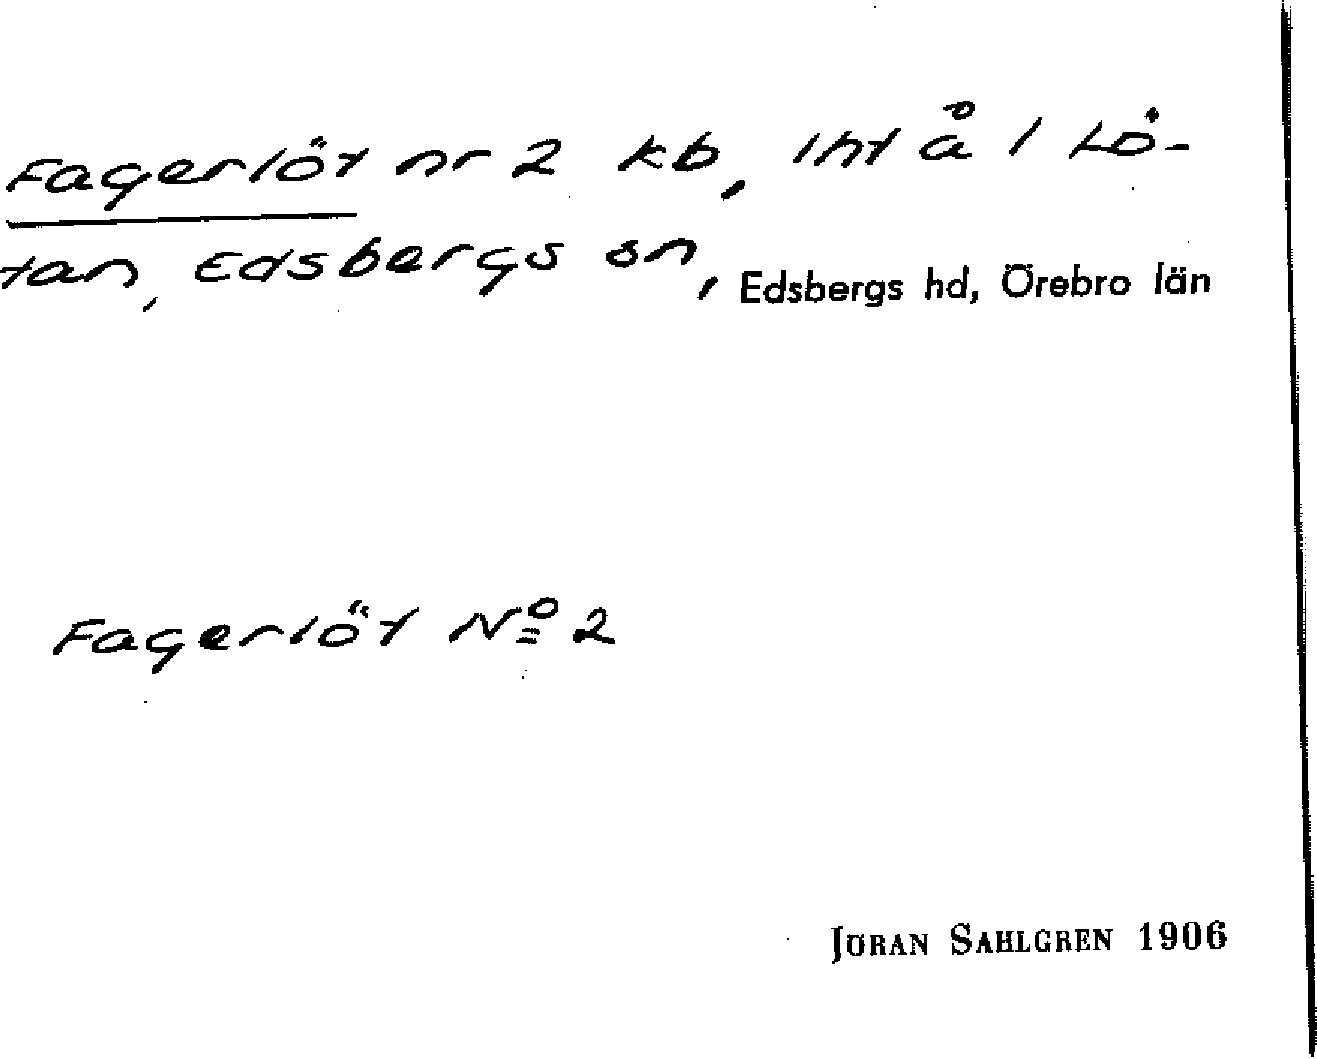 Fagerlöt nr 2 kb, iht å i Lö-
tan, Edsbergs sn, Edsbergs hd, Örebro län
Fagerlöt No 2
JÖRAN SAHLGREN 1906